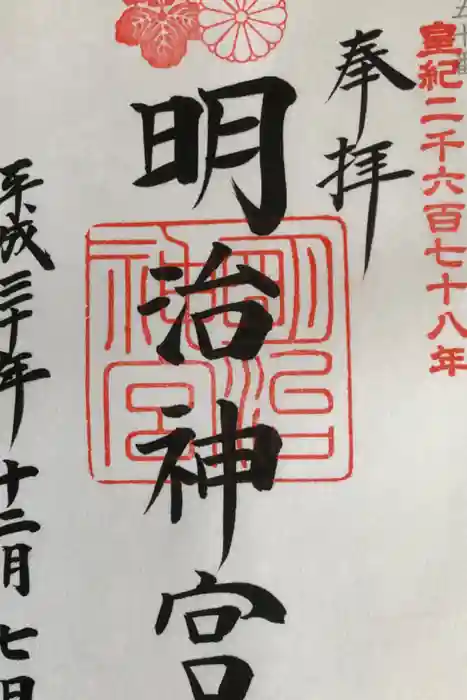 皇紀二千六百七十八年
奉拝
明治神宮
明治神宮
平成三十年十二月七日